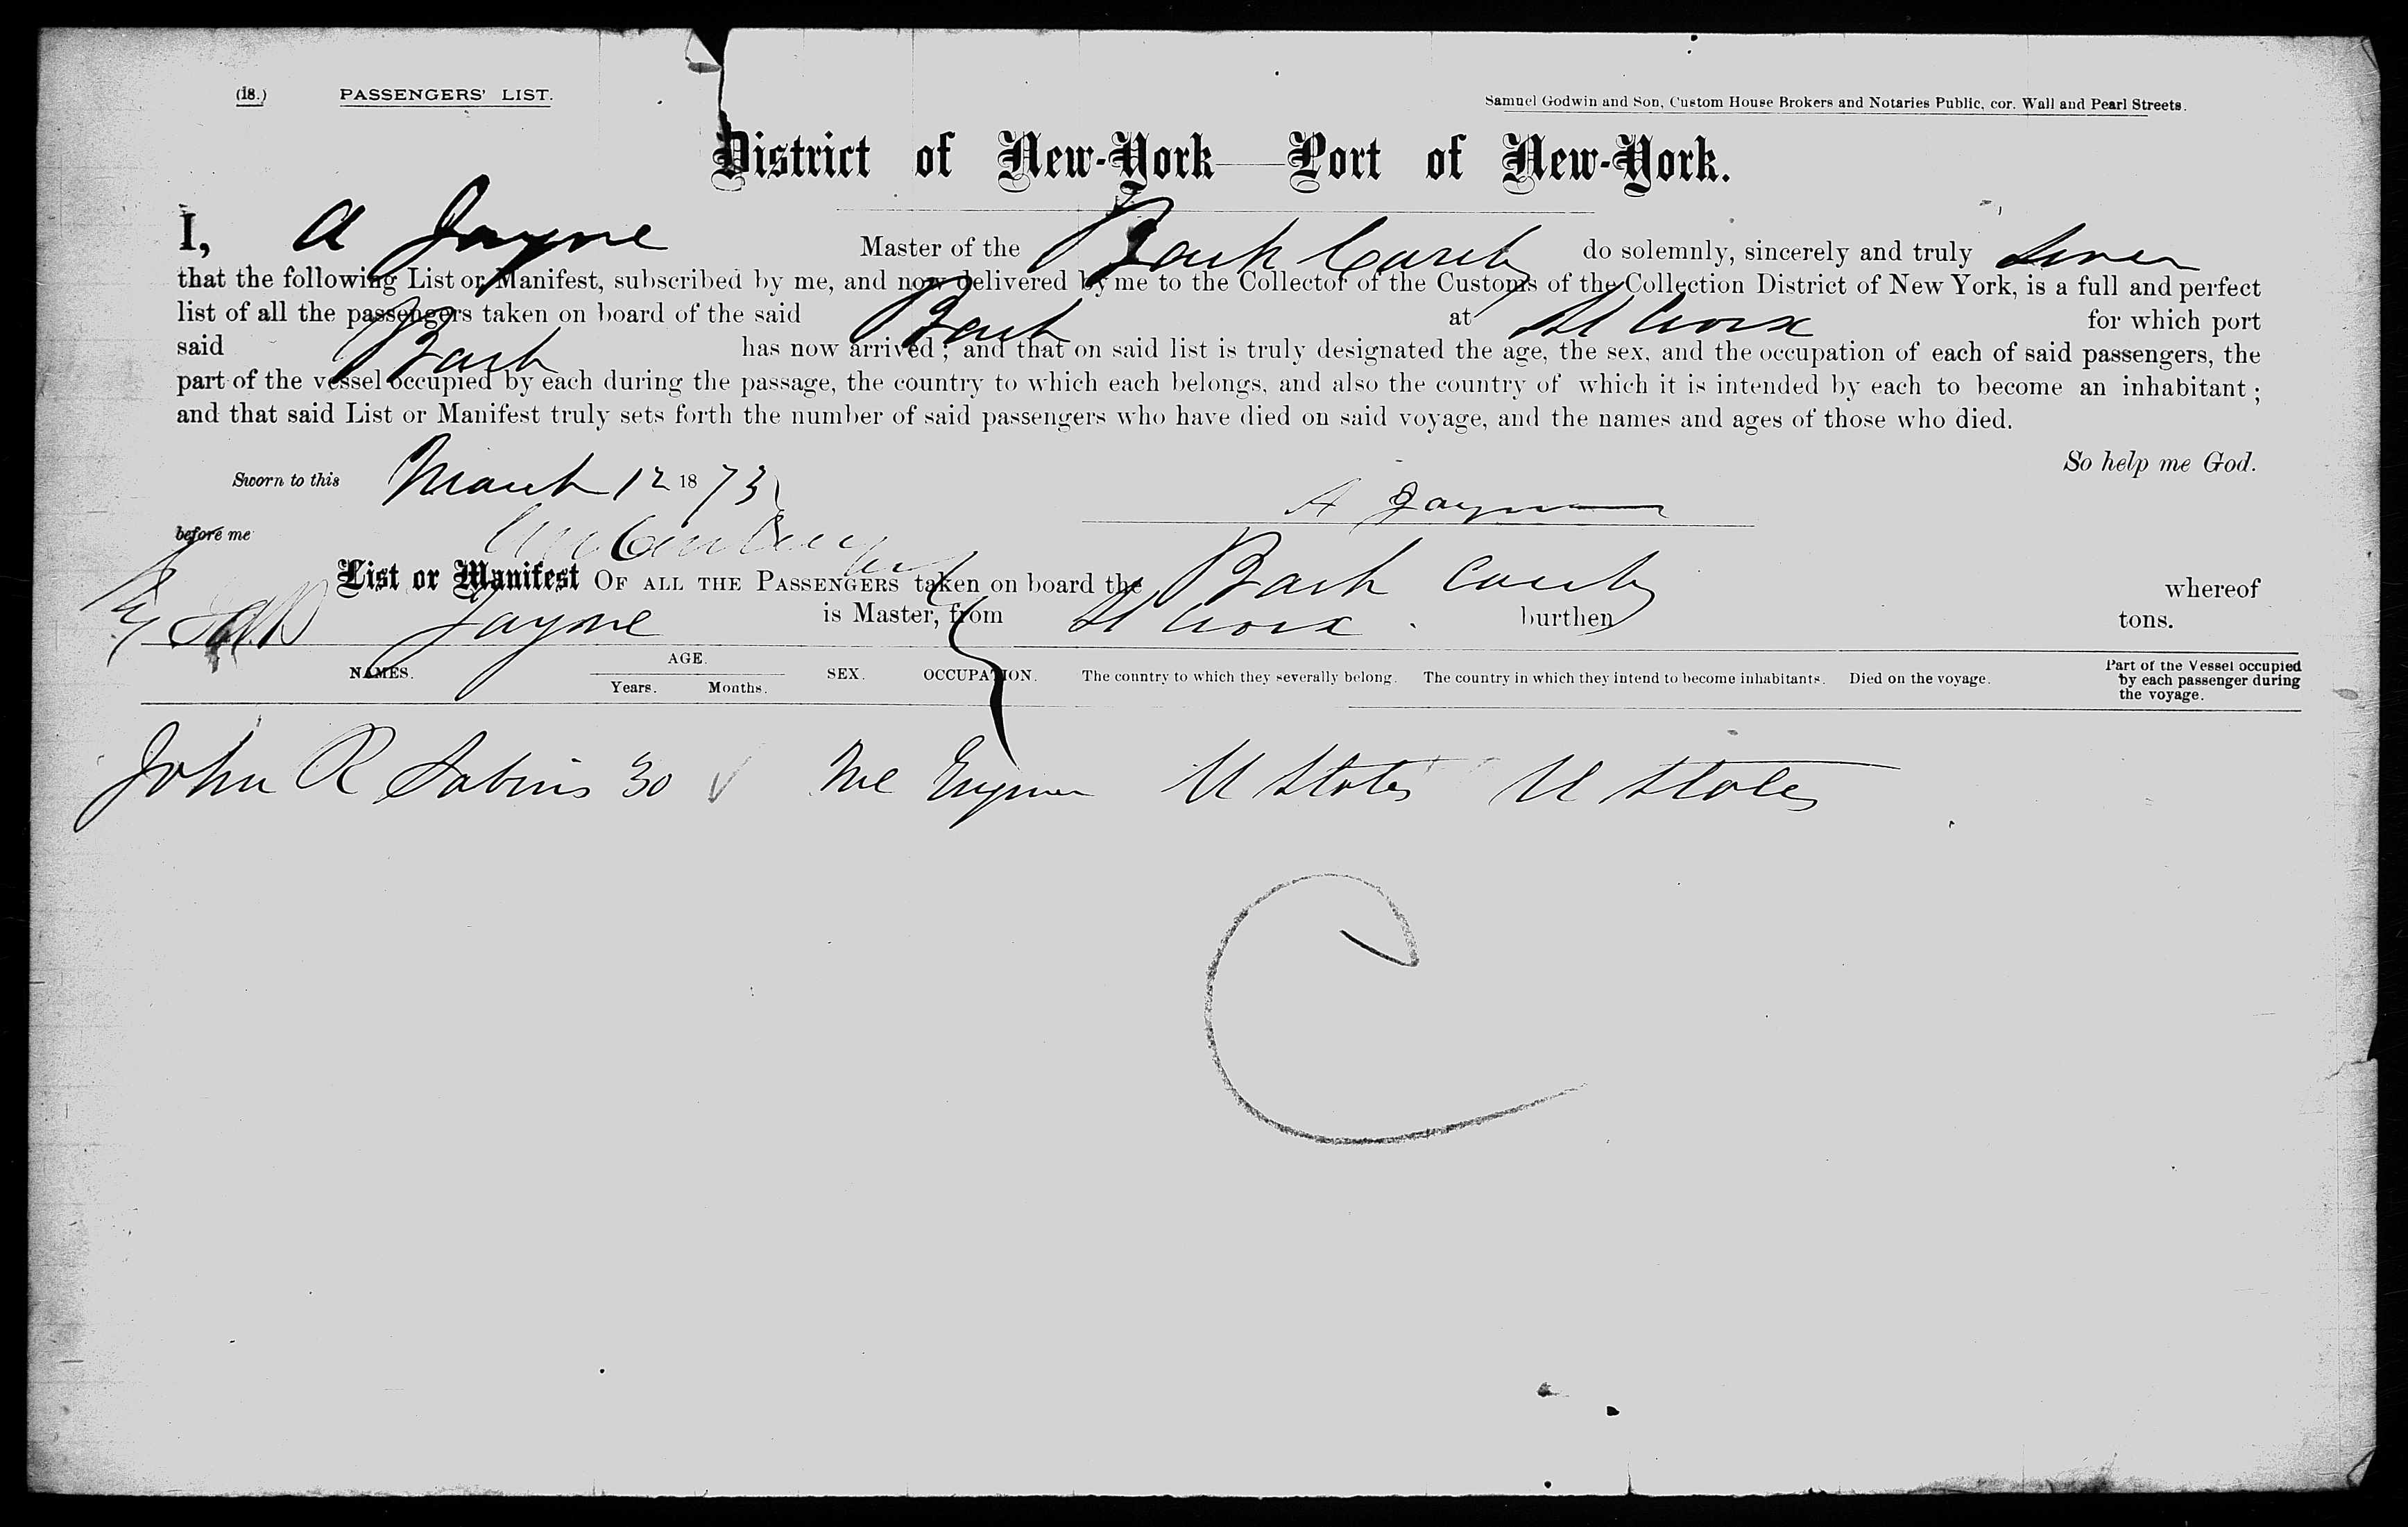 (18.) PASSENGERS' LIST. Samuel Godwin and Son, Custom House Brokers and Notaries Public, cor. Wall and Pearl Streets.
District of New-York—Port of New-York.
I, A Jayne Master of the Bark do solemnly, sincerely and truly swear
that the following List or Manifest, subscribed by me, and now delivered by me to the Collector of the Customs of the Collection District of New York, is a full and perfect
list of all the passengers taken on board of the said Bark at St Croix for which port
said Bark has now arrived; and that on said list is truly designated the age, the sex, and the occupation of each of said passengers, the
part of the vessel occupied by each during the passage, the country to which each belongs, and also the country of which it is intended by each to become an inhabitant;
and that said List or Manifest truly sets forth the number of said passengers who have died on said voyage, and the names and ages of those who died.
So help me God.
Sworn to this March 12 1873
A Jayne
before me
List or Manifest OF ALL THE PASSENGERS taken on board the Bark whereof
Jayne is Master, from St Croix burthen tons.
NAMES. AGE. Years. Months. SEX. OCCUPATION. The country to which they severally belong. The country in which they intend to become inhabitants. Died on the voyage. Part of the Vessel occupied by each passenger during the voyage.
John R Sabins 30 Me U States U States
C